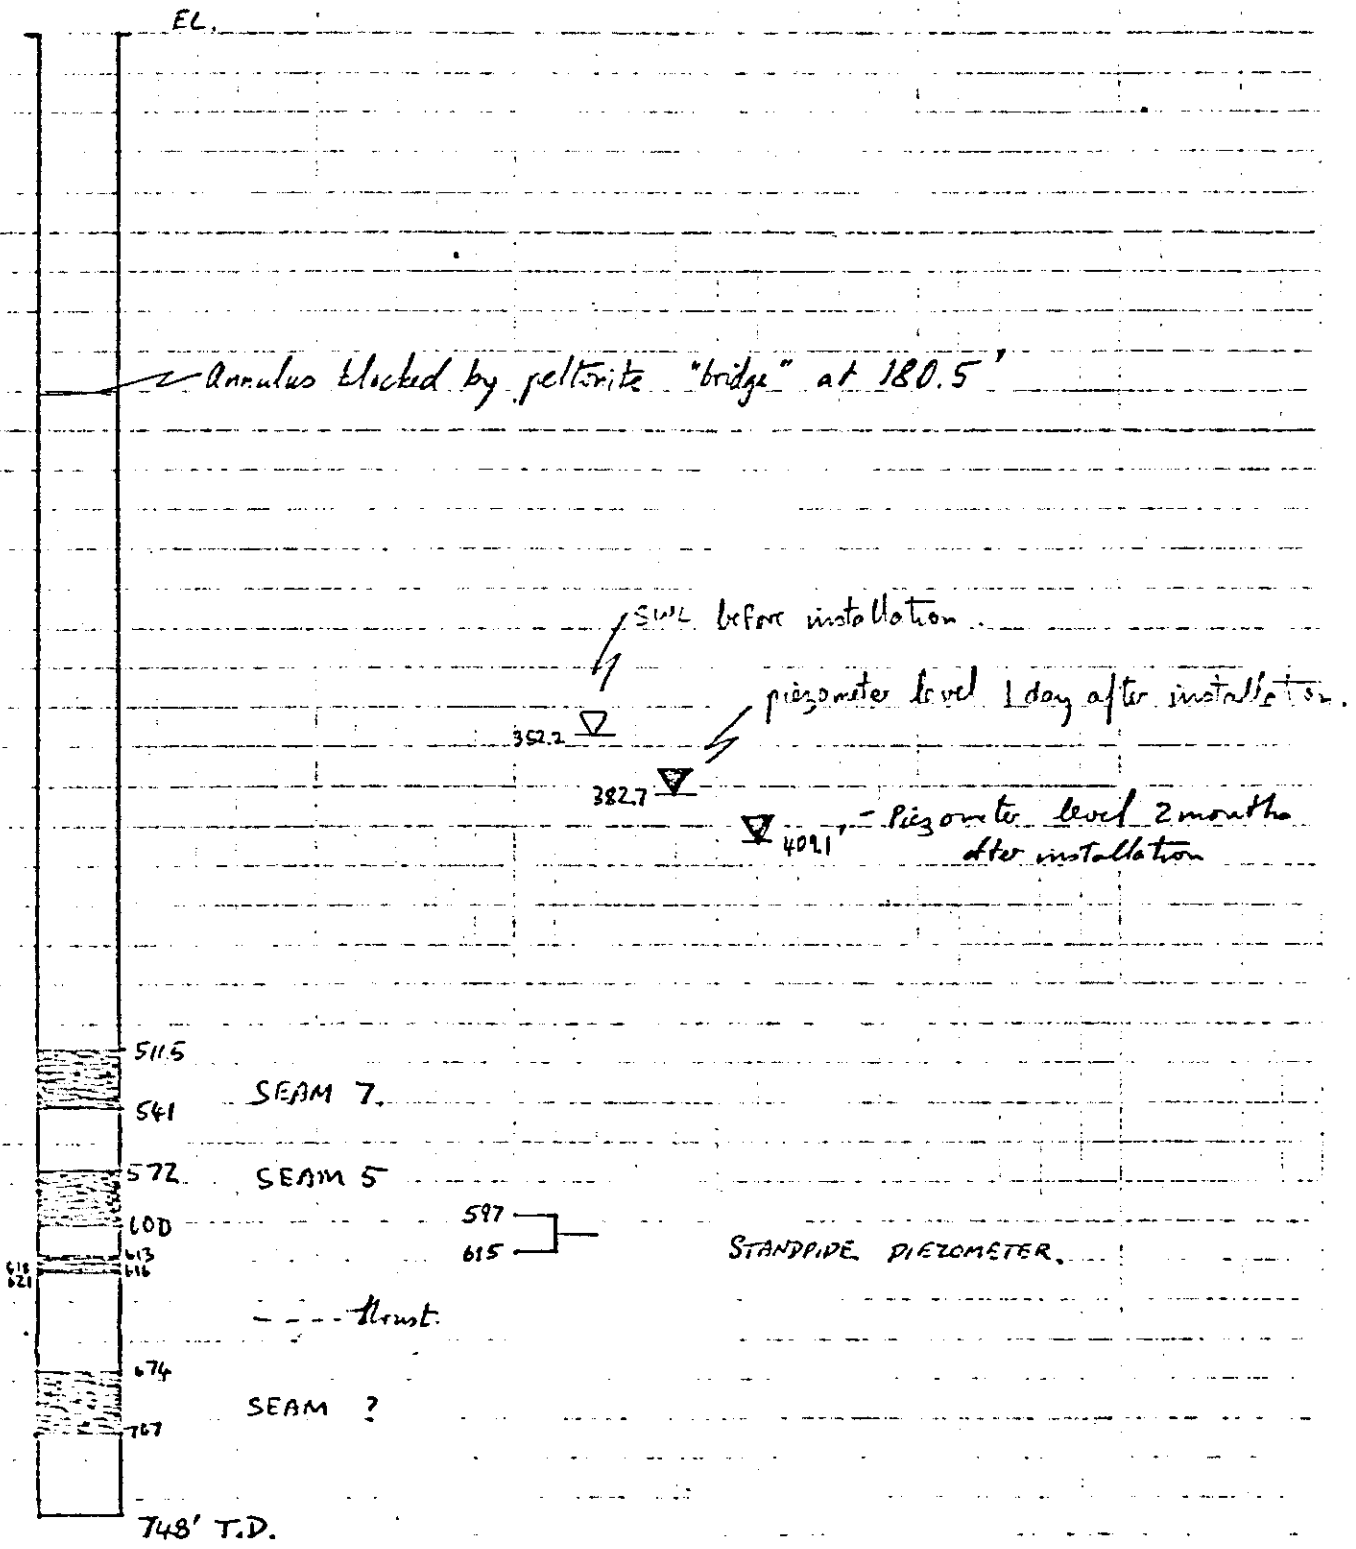 EL.
Annulus blocked by peltonite "bridge" at 180.5'
SWL before installation.
piezometer level 1 day after installation.
352.2
382.7
409.1' - Piezometer level 2 months
after installation
511.5
SEAM 7.
541
572
SEAM 5
600
597
615
STANDPIPE PIEZOMETER.
613
616
618
621
---- thrust.
674
SEAM ?
748' T.D.